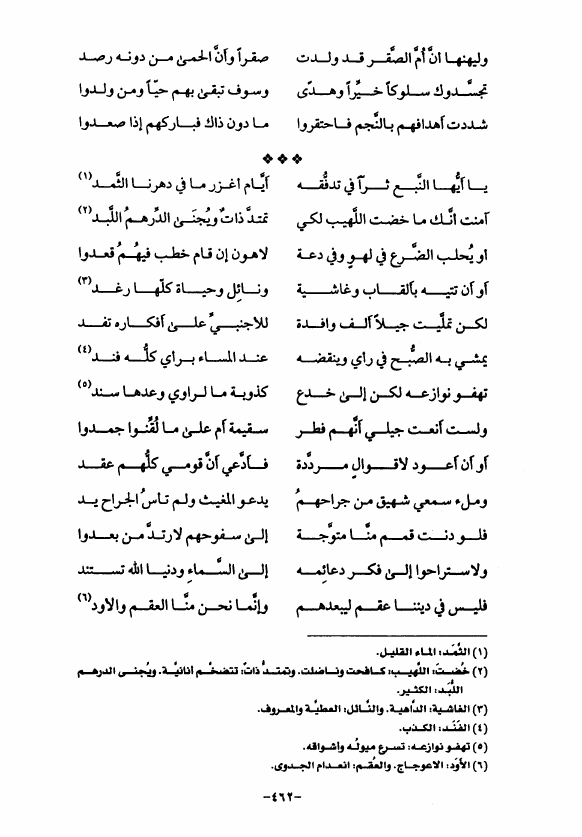 وليهنها انَّ أُمَّ الصَّقر قد ولدت صقراً وأنَّ الحمىٰ من دونه رصد
تجسَّدوك سلوكاً خيِّراً وهدًى وسوف تبقىٰ بهم حيّاً ومن ولدوا
شددت أهدافهم بالنَّجم فاحتقروا ما دون ذاك فباركهم إذا صعدوا
❖❖❖
يا أيُّها النَّبع ثرّاً في تدفُّقه أيَّام أغزر ما في دهرنا الثَّمد(١)
آمنت انَّك ما خضت اللَّهيب لكي تمتدَّ ذاتٌ ويُجنَىٰ الدِّرهمُ اللَّبد(٢)
او يُحلب الضَّرع في لهوٍ وفي دعة لاهون إن قام خطب فيهُمُ قعدوا
أو أن تتيه بألقاب وغاشية ونائِل وحياة كلّها رغد(٣)
لكن تملَّيت جيلاً ألف وافدة للأجنبيِّ علىٰ أفكاره تفد
يمشي به الصُّبح في راي وينقضه عند المساء براي كلُّه فند(٤)
تهفو نوازعه لكن إلىٰ خدع كذوبة ما لراوي وعدها سند(٥)
ولست أنعت جيلي أنَّهم فطر سقيمة أم علىٰ ما لُقِّنوا جمدوا
أو أن أعود لاقوالٍ مردَّدة فأدَّعي أنَّ قومي كلُّهم عقد
وملء سمعي شهيق من جراحهمُ يدعو المغيث ولم تأسُ الجراح يد
فلو دنت قمم منَّا متوَّجة إلىٰ سفوحهم لارتدَّ من بعدوا
ولاستراحوا إلىٰ فكر دعائمه إلىٰ السَّماء ودنيا الله تستند
فليس في ديننا عقم ليبعدهم وإنَّما نحن منَّا العقم والاود(٦)
(١) الثَّمَد: الماء القليل.
(٢) خُضتَ: اللَّهيب: كافحت وناضلت. وتمتدُّ ذاتٌ: تتضخَّم أنانيَّة. ويُجنى الدرهم
اللُّبَد: الكثير.
(٣) الغاشية: الدَّاهية. والنَّائل: العطيَّة والمعروف.
(٤) الفَنَد: الكذب.
(٥) تهفو نوازعه: تسرع ميولُه واشواقه.
(٦) الأوَد: الاعوجاج. والعُقم: انعدام الجدوى.
-٤٦٢-